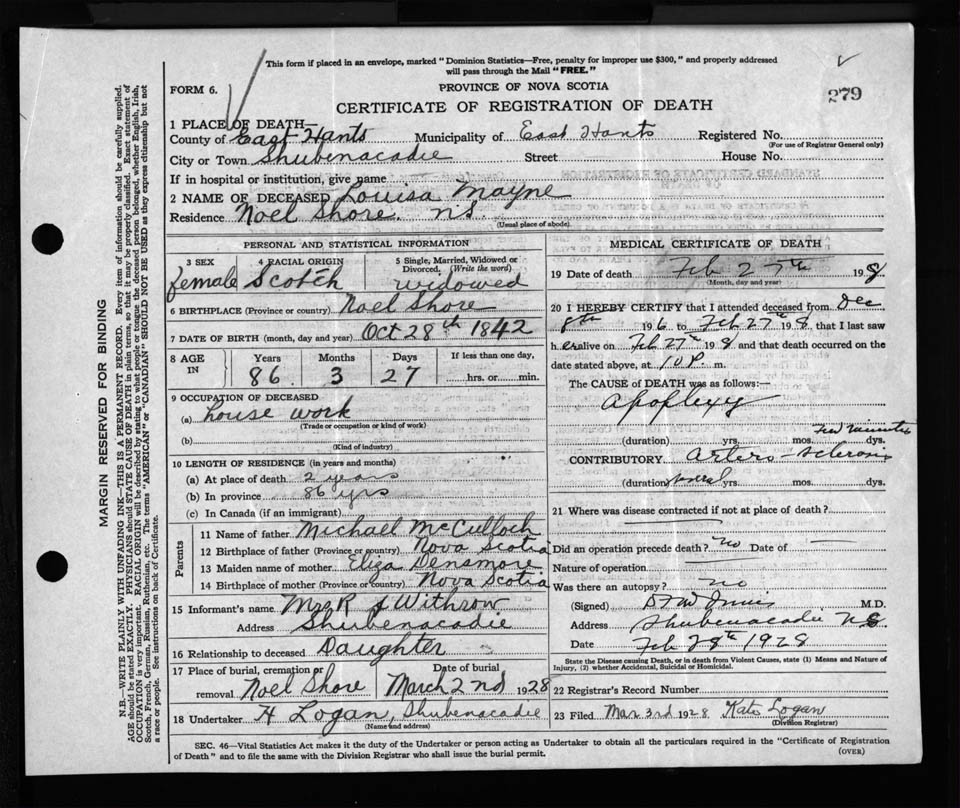 This form if placed in an envelope, marked "Dominion Statistics—Free, penalty for improper use $300," and properly addressed
will pass through the Mail "FREE."
FORM 6.
PROVINCE OF NOVA SCOTIA
279
CERTIFICATE OF REGISTRATION OF DEATH
1 PLACE OF DEATH—
County of East Hants Municipality of East Hants Registered No.
(For use of Registrar General only)
City or Town Shubenacadie Street House No.
If in hospital or institution, give name
2 NAME OF DECEASED Louisa Mayne
Residence Noel Shore NS.
(Usual place of abode)
PERSONAL AND STATISTICAL INFORMATION
3 SEX 4 RACIAL ORIGIN 5 Single, Married, Widowed or
Divorced. (Write the word)
female Scotch widowed
6 BIRTHPLACE (Province or country) Noel Shore
7 DATE OF BIRTH (month, day and year) Oct 28th 1842
8 AGE IN Years Months Days If less than one day,
86 3 27 hrs. or min.
9 OCCUPATION OF DECEASED
(a) house work
(Trade or occupation or kind of work)
(b)
(Kind of industry)
10 LENGTH OF RESIDENCE (in years and months)
(a) At place of death 2 years
(b) In province 86 yrs
(c) In Canada (if an immigrant)
Parents
11 Name of father Michael McCulloch
12 Birthplace of father (Province or country) Nova Scotia
13 Maiden name of mother Eliza Densmore
14 Birthplace of mother (Province or country) Nova Scotia
15 Informant's name Mrs R J Withrow
Address Shubenacadie
16 Relationship to deceased Daughter
17 Place of burial, cremation or Date of burial
removal Noel Shore March 2nd 1928
18 Undertaker H Logan, Shubenacadie
(Name and address)
MEDICAL CERTIFICATE OF DEATH
19 Date of death Feb 27th 198
(Month, day and year)
20 I HEREBY CERTIFY that I attended deceased from Dec
8th 196 to Feb 27th 198, that I last saw
her alive on Feb 27th 198 and that death occurred on the
date stated above, at 10 P. m.
The CAUSE of DEATH was as follows:—
Apoplexy
few minutes
(duration) yrs. mos. dys.
CONTRIBUTORY Arterio-sclerosis
(duration) several yrs. mos. dys.
21 Where was disease contracted if not at place of death?
Did an operation precede death? no Date of —
Nature of operation
Was there an autopsy? no
(Signed) M.D.
Address Shubenacadie NS
Date Feb 28th 1928
State the Disease causing Death, or in death from Violent Causes, state (1) Means and Nature of
Injury, (2) whether Accidental, Suicidal or Homicidal.
22 Registrar's Record Number
23 Filed Mar 3rd 1928 Kate Logan
(Division Registrar)
SEC. 46—Vital Statistics Act makes it the duty of the Undertaker or person acting as Undertaker to obtain all the particulars required in the "Certificate of Registration
of Death" and to file the same with the Division Registrar who shall issue the burial permit.
(OVER)
MARGIN RESERVED FOR BINDING
N.B.—WRITE PLAINLY WITH UNFADING INK—THIS IS A PERMANENT RECORD. Every item of information should be carefully supplied.
AGE should be stated EXACTLY. PHYSICIANS should STATE CAUSE OF DEATH in plain terms, so that it may be properly classified. Exact statement of
OCCUPATION is very important. RACIAL ORIGIN will be described by stating to what people or tongue the deceased person belonged, whether English, Irish,
Scotch, French, German, Russian, Ruthenian, etc. The terms "AMERICAN" or "CANADIAN" SHOULD NOT BE USED as they express citizenship but not
a race or people. See instructions on back of Certificate.